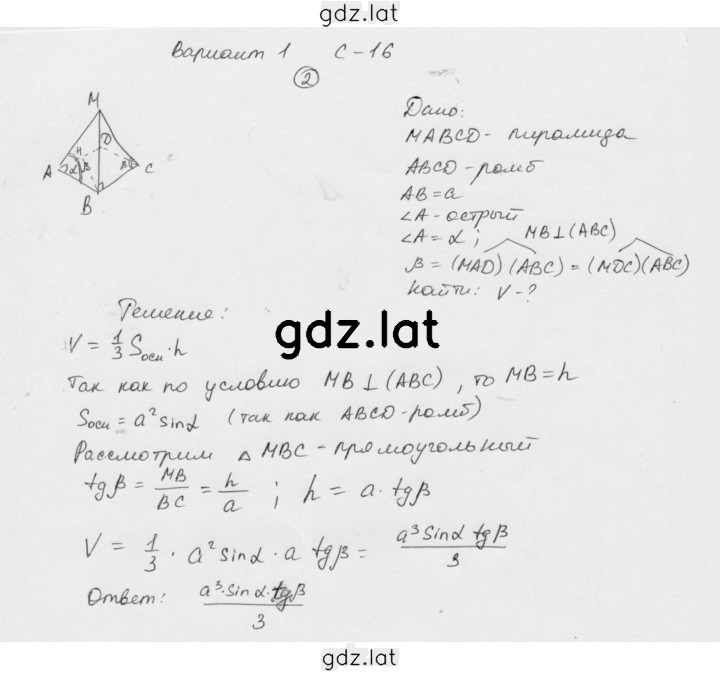 gdz.lat
Вариант 1 С-16
2
M
D
H
A
α
β
β
C
B
Дано:
MABCD - пирамида
ABCD - ромб
AB = a
∠A - острый
∠A = α; MB⊥(ABC)
β = (MAD)(ABC) = (MDC)(ABC)
Найти: V - ?
Решение:
V = 1/3 Sосн · h
gdz.lat
Так как по условию MB⊥(ABC), то MB = h
Sосн = a² sinα (так как ABCD - ромб)
Рассмотрим △MBC - прямоугольный
tgβ = MB/BC = h/a ; h = a · tgβ
V = 1/3 · a² sinα · a tgβ = a³ sinα tgβ / 3
Ответ: a³ · sinα · tgβ / 3
gdz.lat